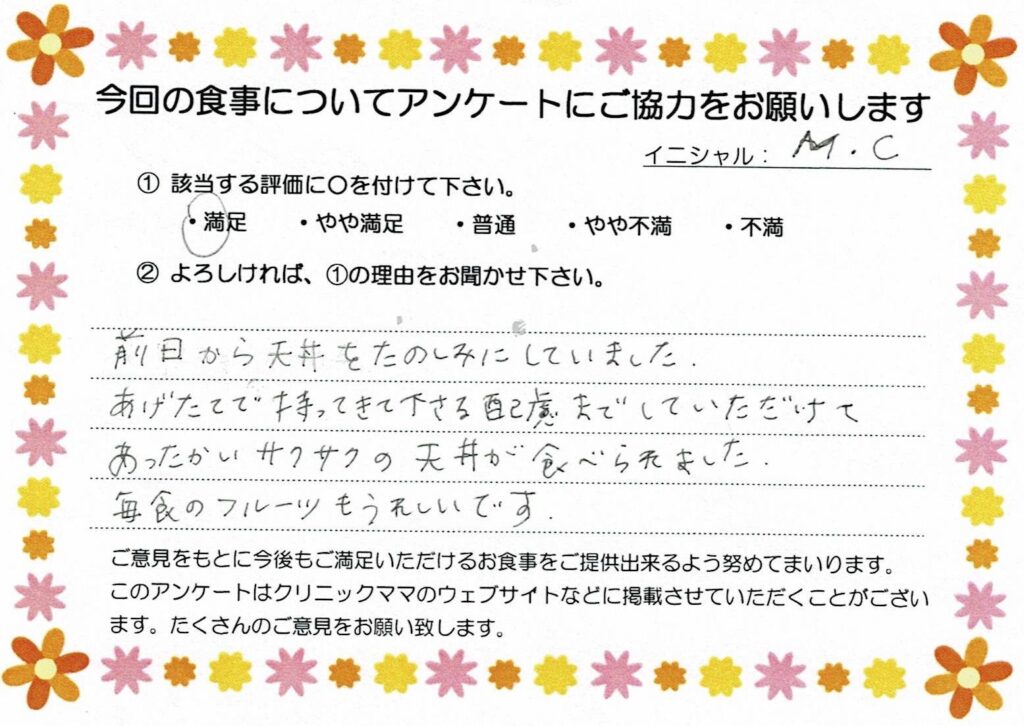 今回の食事についてアンケートにご協力をお願いします
イニシャル： M.C
① 該当する評価に〇を付けて下さい。
・満足 ・やや満足 ・普通 ・やや不満 ・不満
② よろしければ、①の理由をお聞かせ下さい。
前日から天丼をたのしみにしていました.
あげたてで持ってきて下さる配慮までしていただけて
あったかいサクサクの天丼が食べられました.
毎食のフルーツもうれしいです.
ご意見をもとに今後もご満足いただけるお食事をご提供出来るよう努めてまいります。
このアンケートはクリニックママのウェブサイトなどに掲載させていただくことがござい
ます。たくさんのご意見をお願い致します。